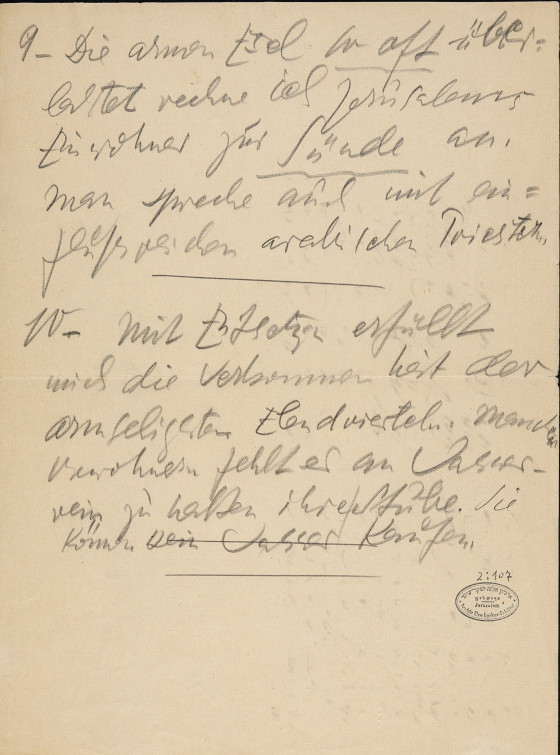 9- Die armen Esel so oft über=
lastet rechne ich Jerusalems
Einwohner zur Sünde an.
Man spreche auch mit ein=
flußreichen arabischen Priestern.
10- Mit Entsetzen erfüllt
mich die Verkommenheit der
armseligsten Elendvierteln. Manchen
Bewohnern fehlt es an Wasser
rein zu halten ihre Stube. Sie
können kein Wasser kaufen.
2:107
Jerusalem